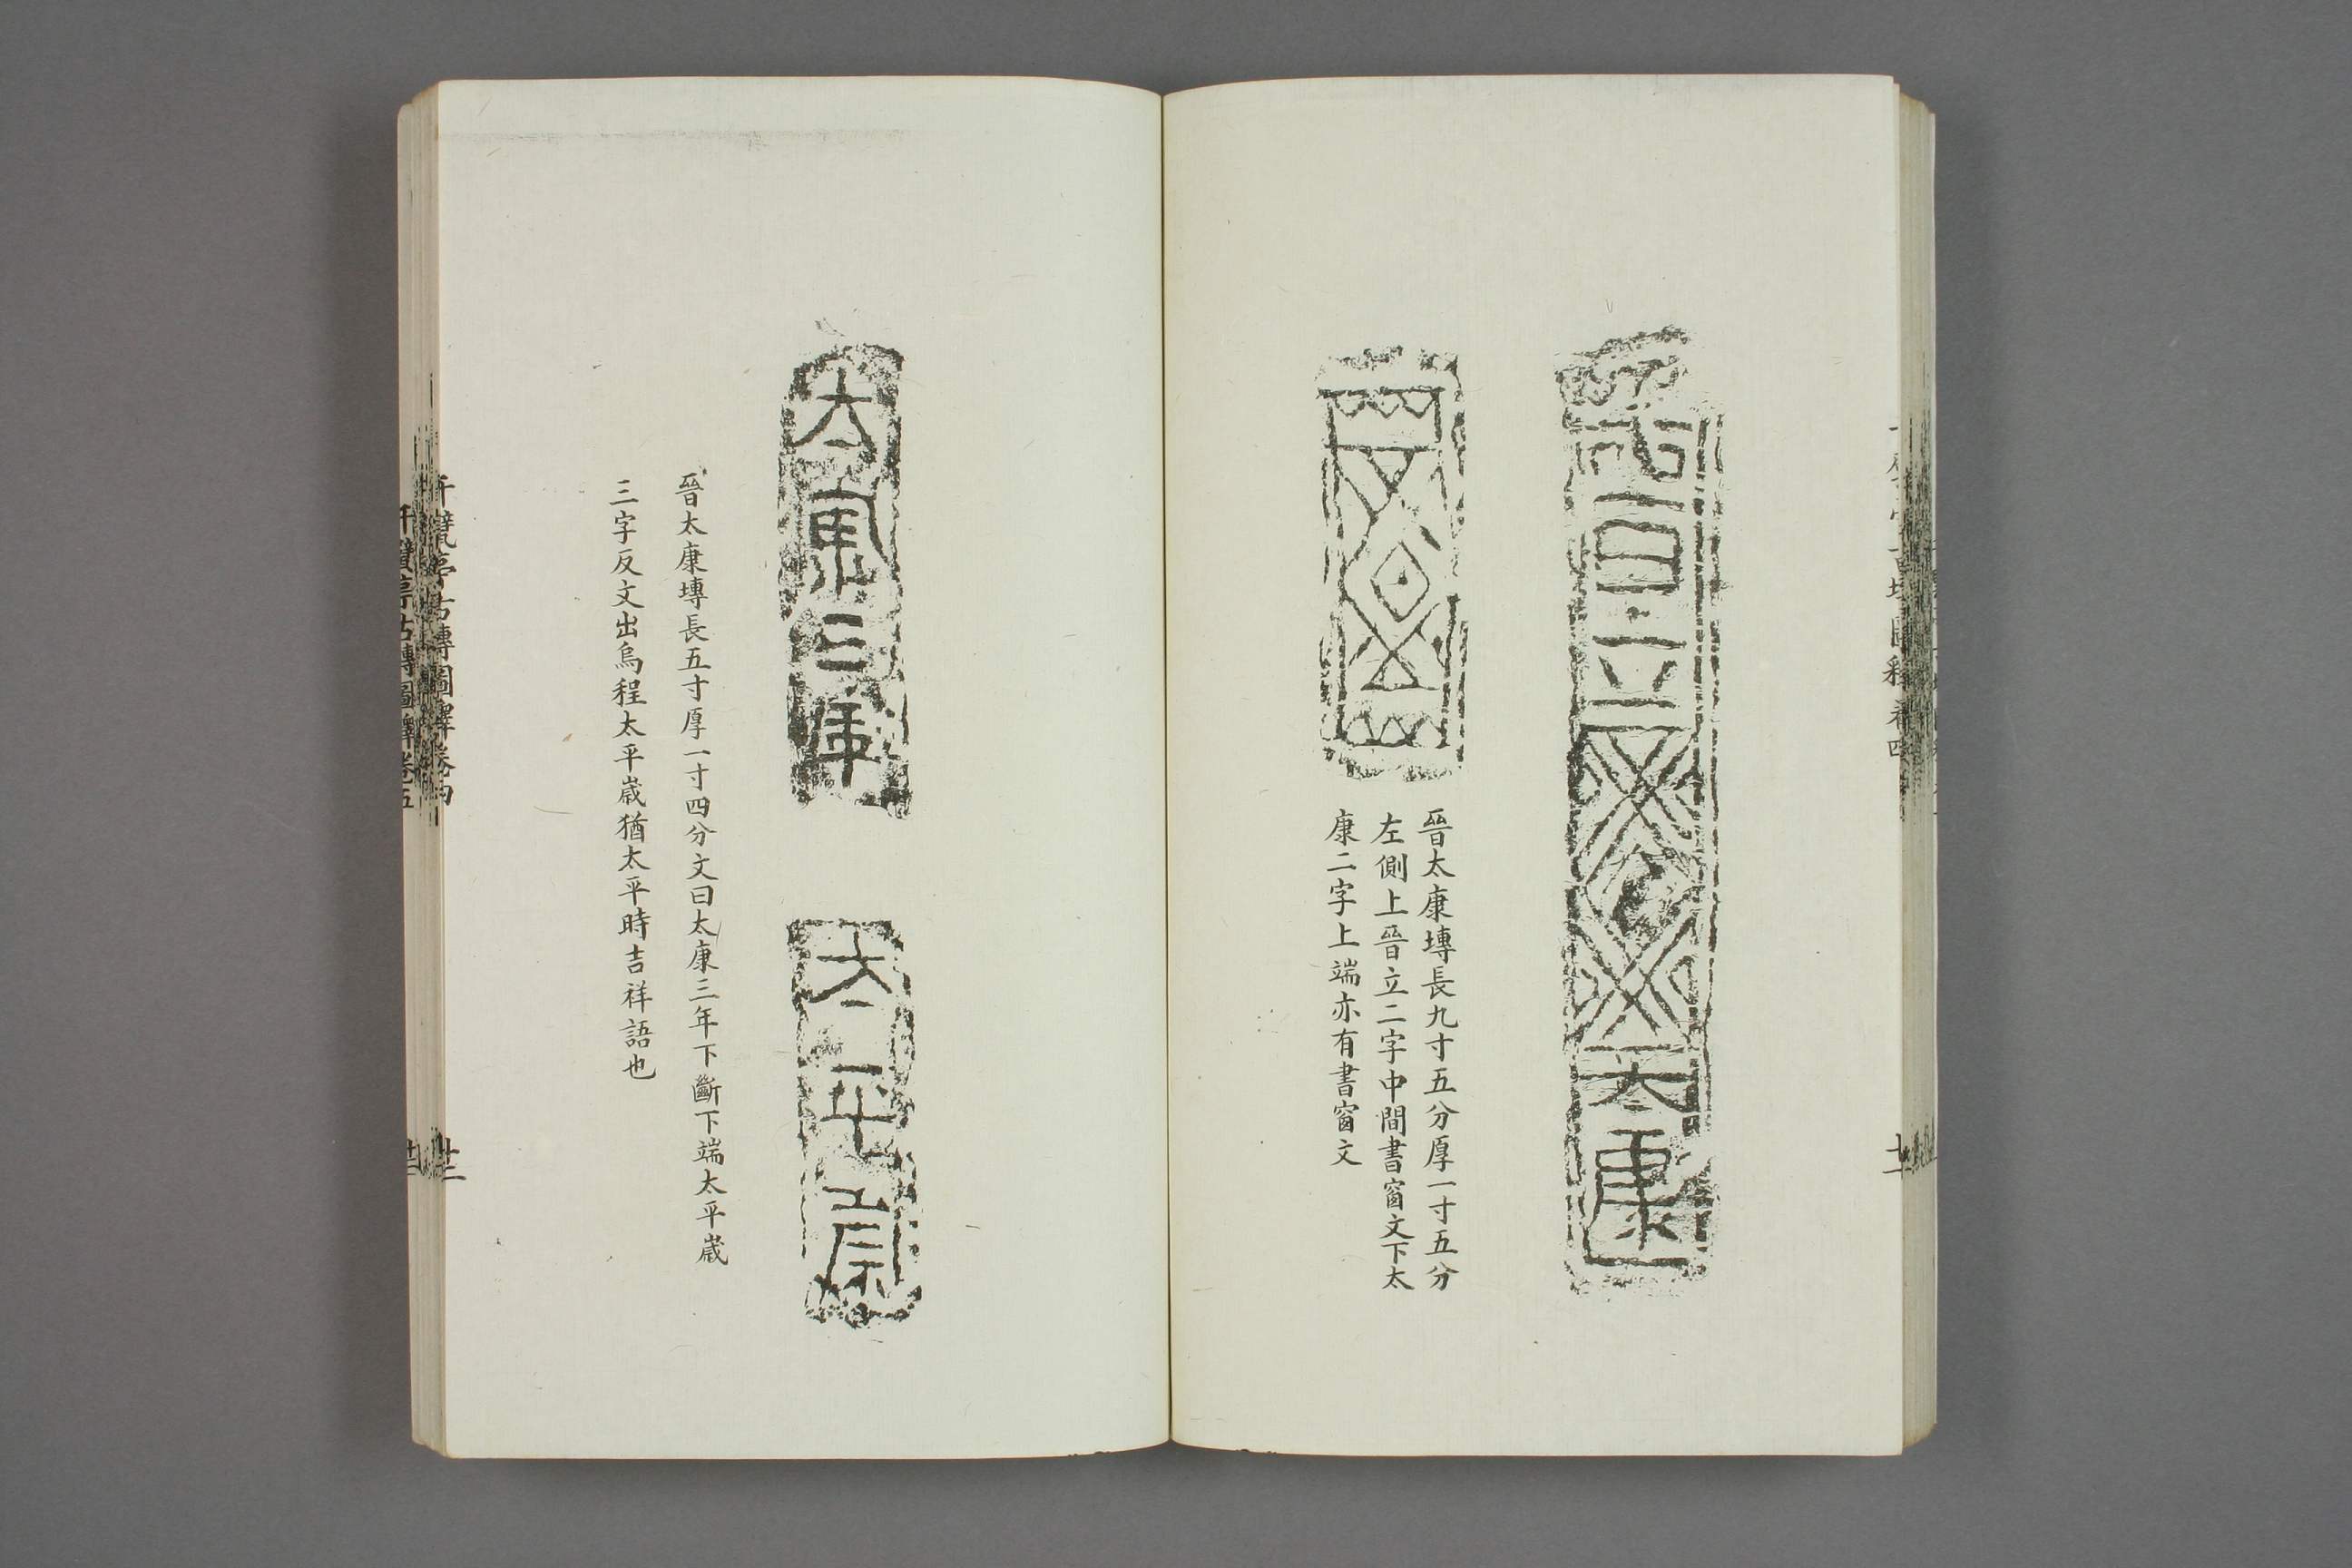 晉立
太康
晉太康塼長九寸五分厚一寸五分
左側上晉立二字中間書窗文下太
康二字上端亦有書窗文
太康三年
太平歲
晉太康塼長五寸厚一寸四分文曰太康三年下斷下端太平歲
三字反文出烏程太平歲猶太平時吉祥語也
千甓亭古塼圖釋卷四